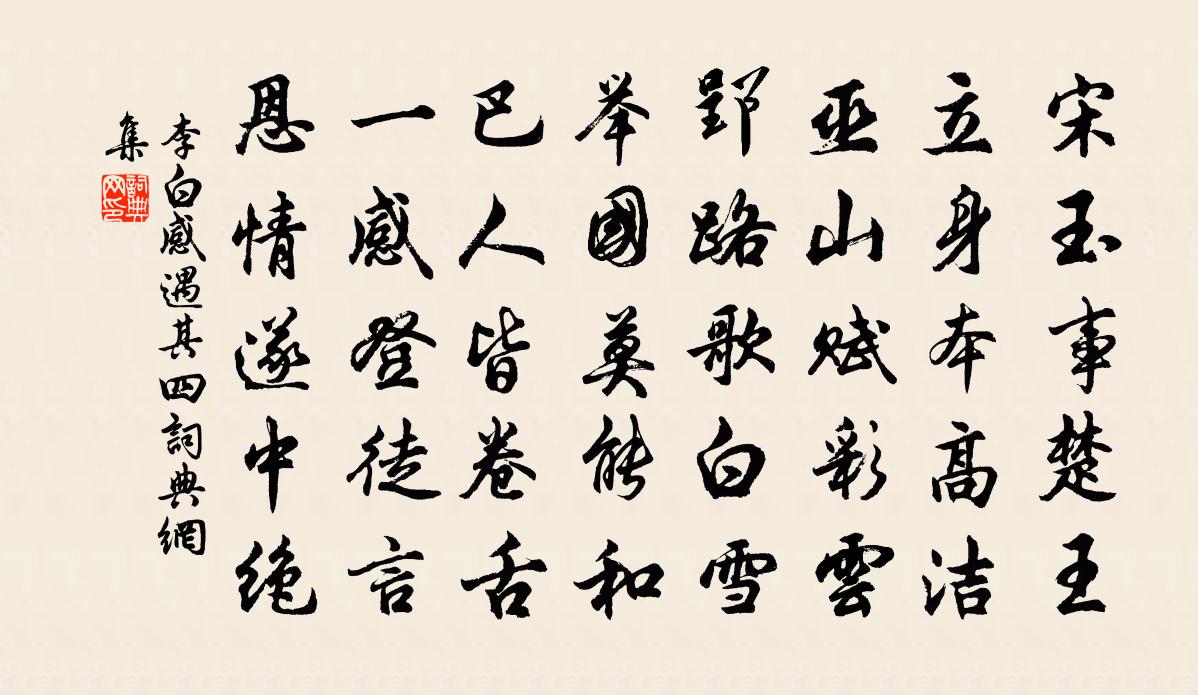 宋玉事楚王
立身本高洁
巫山赋彩雲
郢路歌白雪
举國莫能和
巴人皆卷舌
一感登徒言
恩情遂中绝
李白感遇其四詞典網
集
詞典
网印